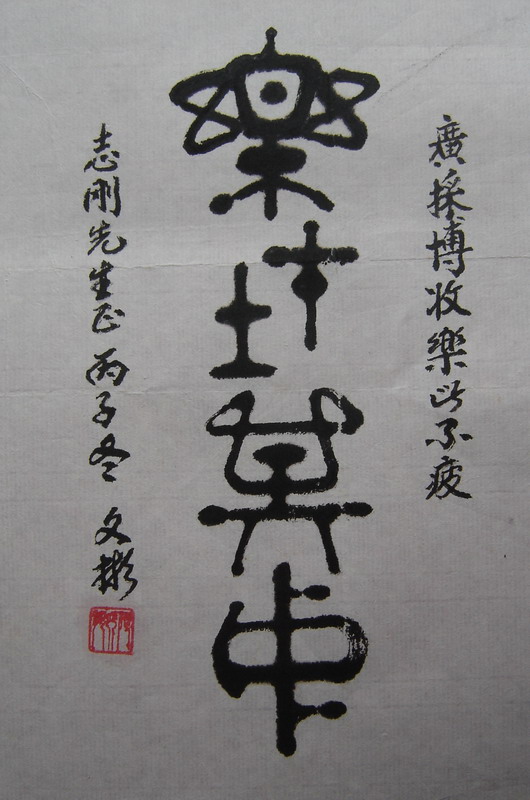 廣採博收樂此不疲
樂在其中
志刚先生正 丙子冬 文彬